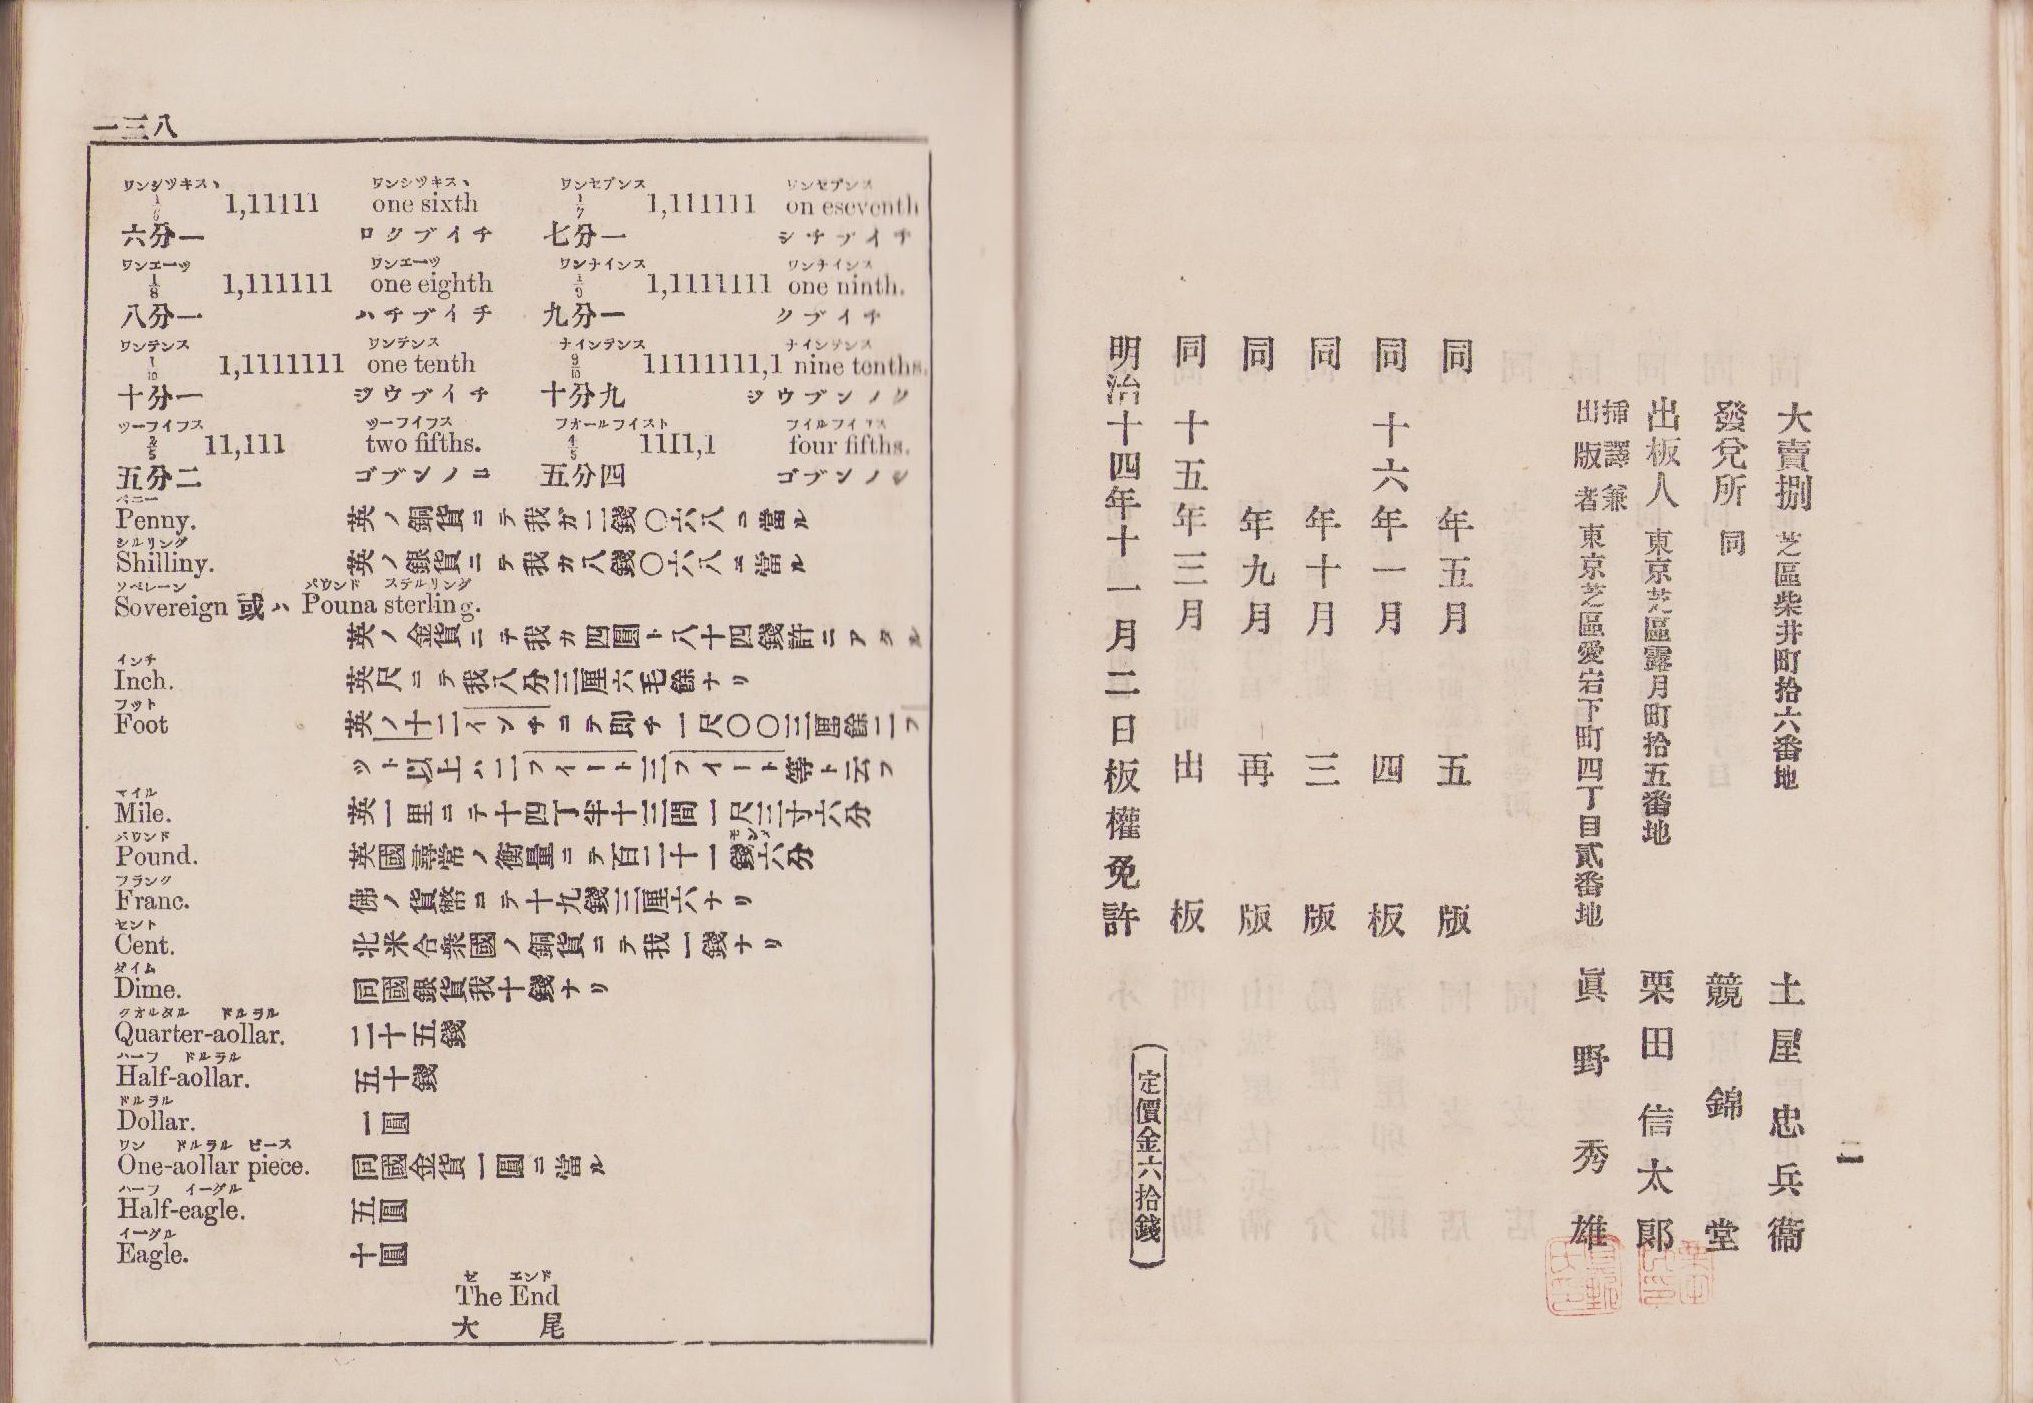 一三八
ワンシツキスヽ ワンシツキスヽ ワンセブンス ワンセブンス
1/6 1,11111 one sixth 1/7 1,111111 on eseventh
六分一 ロクブイチ 七分一 シチブイチ
ワンエーツ ワンエーツ ワンナインス ワンナインス
1/8 1,111111 one eighth 1/9 1,1111111 one ninth.
八分一 ハチブイチ 九分一 クブイチ
ワンテンス ワンテンス ナインテンス ナインテンス
1/10 1,1111111 one tenth 9/10 11111111,1 nine tenths.
十分一 ジウブイチ 十分九 ジウブンノク
ツーフイフス ツーフイフス フオールフイスト フイルフイフス
2/5 11,111 two fifths. 4/5 11I1,1 four fifths.
五分二 ゴブンノニ 五分四 ゴブンノシ
ペニー
Penny. 英ノ銅貨ニテ我ガ二錢〇六八ニ當ル
シルリング
Shilliny. 英ノ銀貨ニテ我カ八錢〇六八ニ當ル
ソベレーン パウンド ステルリング
Sovereign 或ハ Pouna sterling.
英ノ金貨ニテ我カ四圓ト八十四錢許ニアタル
インチ
Inch. 英尺ニテ我八分三厘六毛餘ナリ
フット
Foot 英ノ十二インチニテ即チ一尺〇〇三厘餘二フ
ット以上ハ二フイート三フイート等ト云フ
マイル
Mile. 英一里ニテ十四丁年十三間一尺三寸六分
パウンド モンメ
Pound. 英國尋常ノ衡量ニテ百二十一錢六分
フランク
Franc. 佛ノ貨幣ニテ十九錢三厘六ナリ
セント
Cent. 北米合衆國ノ銅貨ニテ我一錢ナリ
ダイム
Dime. 同國銀貨我十錢ナリ
クオルタル ドルラル
Quarter-aollar. 二十五錢
ハーフ ドルラル
Half-aollar. 五十錢
ドルラル
Dollar. 一圓
ワン ドルラル ピース
One-aollar piece. 同國金貨一圓ニ當ル
ハーフ イーグル
Half-eagle. 五圓
イーグル
Eagle. 十圓
ゼ エンド
The End
大尾
二
大賣捌 芝區柴井町拾六番地 土屋忠兵衞
發兌所 同 競錦堂
出板人 東京芝區露月町拾五番地 栗田信太郞
挿譯兼
出版者 東京芝區愛宕下町四丁目貳番地 眞野秀雄
同年五月五版
同十六年一月四板
同年十月三版
同年九月再版
同十五年三月出板
明治十四年十一月二日板權免許
(定價金六拾錢)